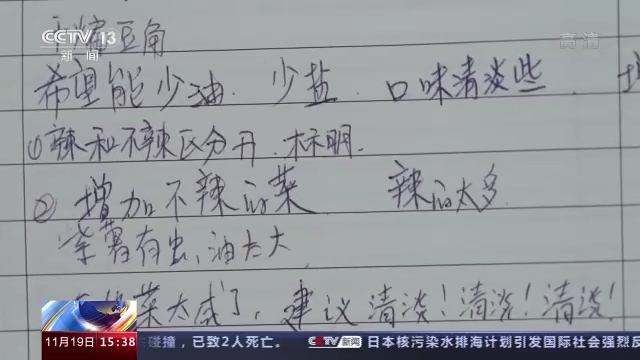 CCTV 13
新闻
高清
干煸豆角
希望能少油. 少盐. 口味清淡些
①辣和不辣区分开.标明.
② 增加不辣的菜 辣的太多
紫薯有虫、油太大
菜太咸了, 建议清淡!清淡!清淡!
11月19日 15:38
碰撞，已致2人死亡。 CCTV 新闻 日本核污染水排海计划引发国际社会强烈反